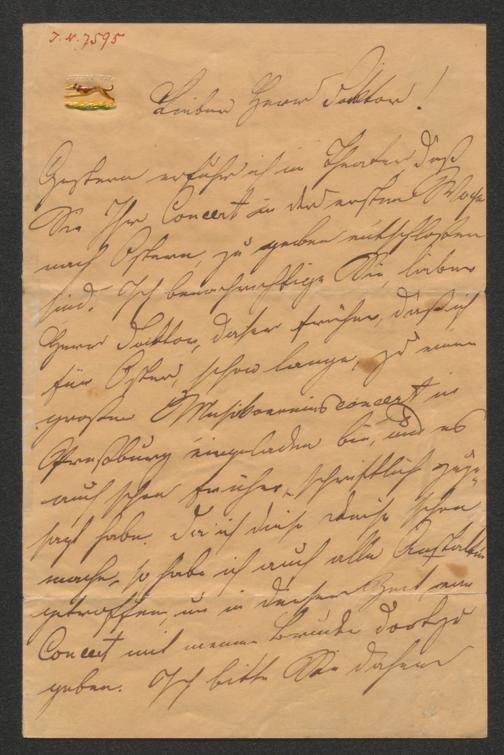 J. N. 7595
Lieber Herr Doktor!
Gestern erfuhr ich im Theater daß
Sie Ihr Concert in der ersten Woche
nach Ostern, zu geben entschlossen
sind. Ich benachrichtige Sie, lieber
Herr Doktor, daher früher, daß ich
für Ostern, schon lange, zu einem
großen Musikvereinsconcert in
Pressburg eingeladen bin, und es
auch schon früher, schriftlich zuge-
sagt habe. Da ich diese Reise schon
mache, so habe ich auch alle Anstalten
getroffen, um in dieser Zeit, ein
Concert mit meinem Bruder dort zu
geben. Ich bitte Sie daher